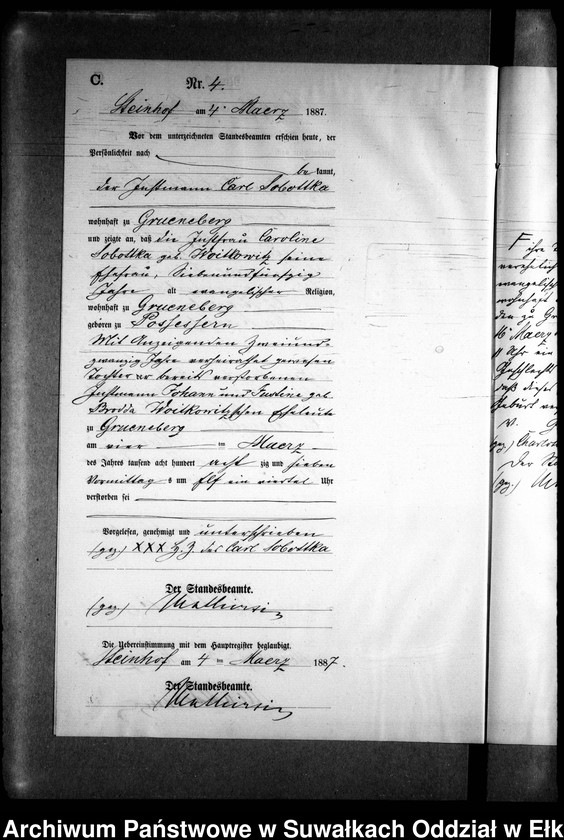 C.
Nr. 4.
Steinhof am 4. Maerz 1887.
Vor dem unterzeichneten Standesbeamten erschien heute, der
Persönlichkeit nach
be kannt,
der Instmann Carl Sobottka
wohnhaft zu Grueneberg
und zeigte an, daß die Instfrau Caroline
Sobottka geb. Woitkowitz seine
Ehefrau, Siebenundfünfzig
Jahre alt evangelischer Religion,
wohnhaft zu Grueneberg
geboren zu Possessern
Mit Anzeigenden Zweiund-
zwanzig Jahre verheirathet gewesen
Tochter der bereits verstorbenen
Instmann Johann und Justine geb.
Brodda Woitkowitzschen Eheleute
zu Grueneberg
am vier ten Maerz
des Jahres tausend acht hundert acht zig und sieben
Vormittag s um elf ein viertel Uhr
verstorben sei
Vorgelesen, genehmigt und unterschrieben
(gez.) XXX H. Z. des Carl Sobottka
Der Standesbeamte.
(gez.)
Die Uebereinstimmung mit dem Hauptregister beglaubigt.
Steinhof am 4 ten Maerz 1887.
Der Standesbeamte.
F
ihre
verehelicht
evangelisch
wohnhaft
den zu Gr
16 Maerz
11 Uhr ein
Geschlecht
daß dieses
Geburt ver
V. G
gez.) Charlott
Der St
(gez.)
Archiwum Państwowe w Suwałkach Oddział w Ełk